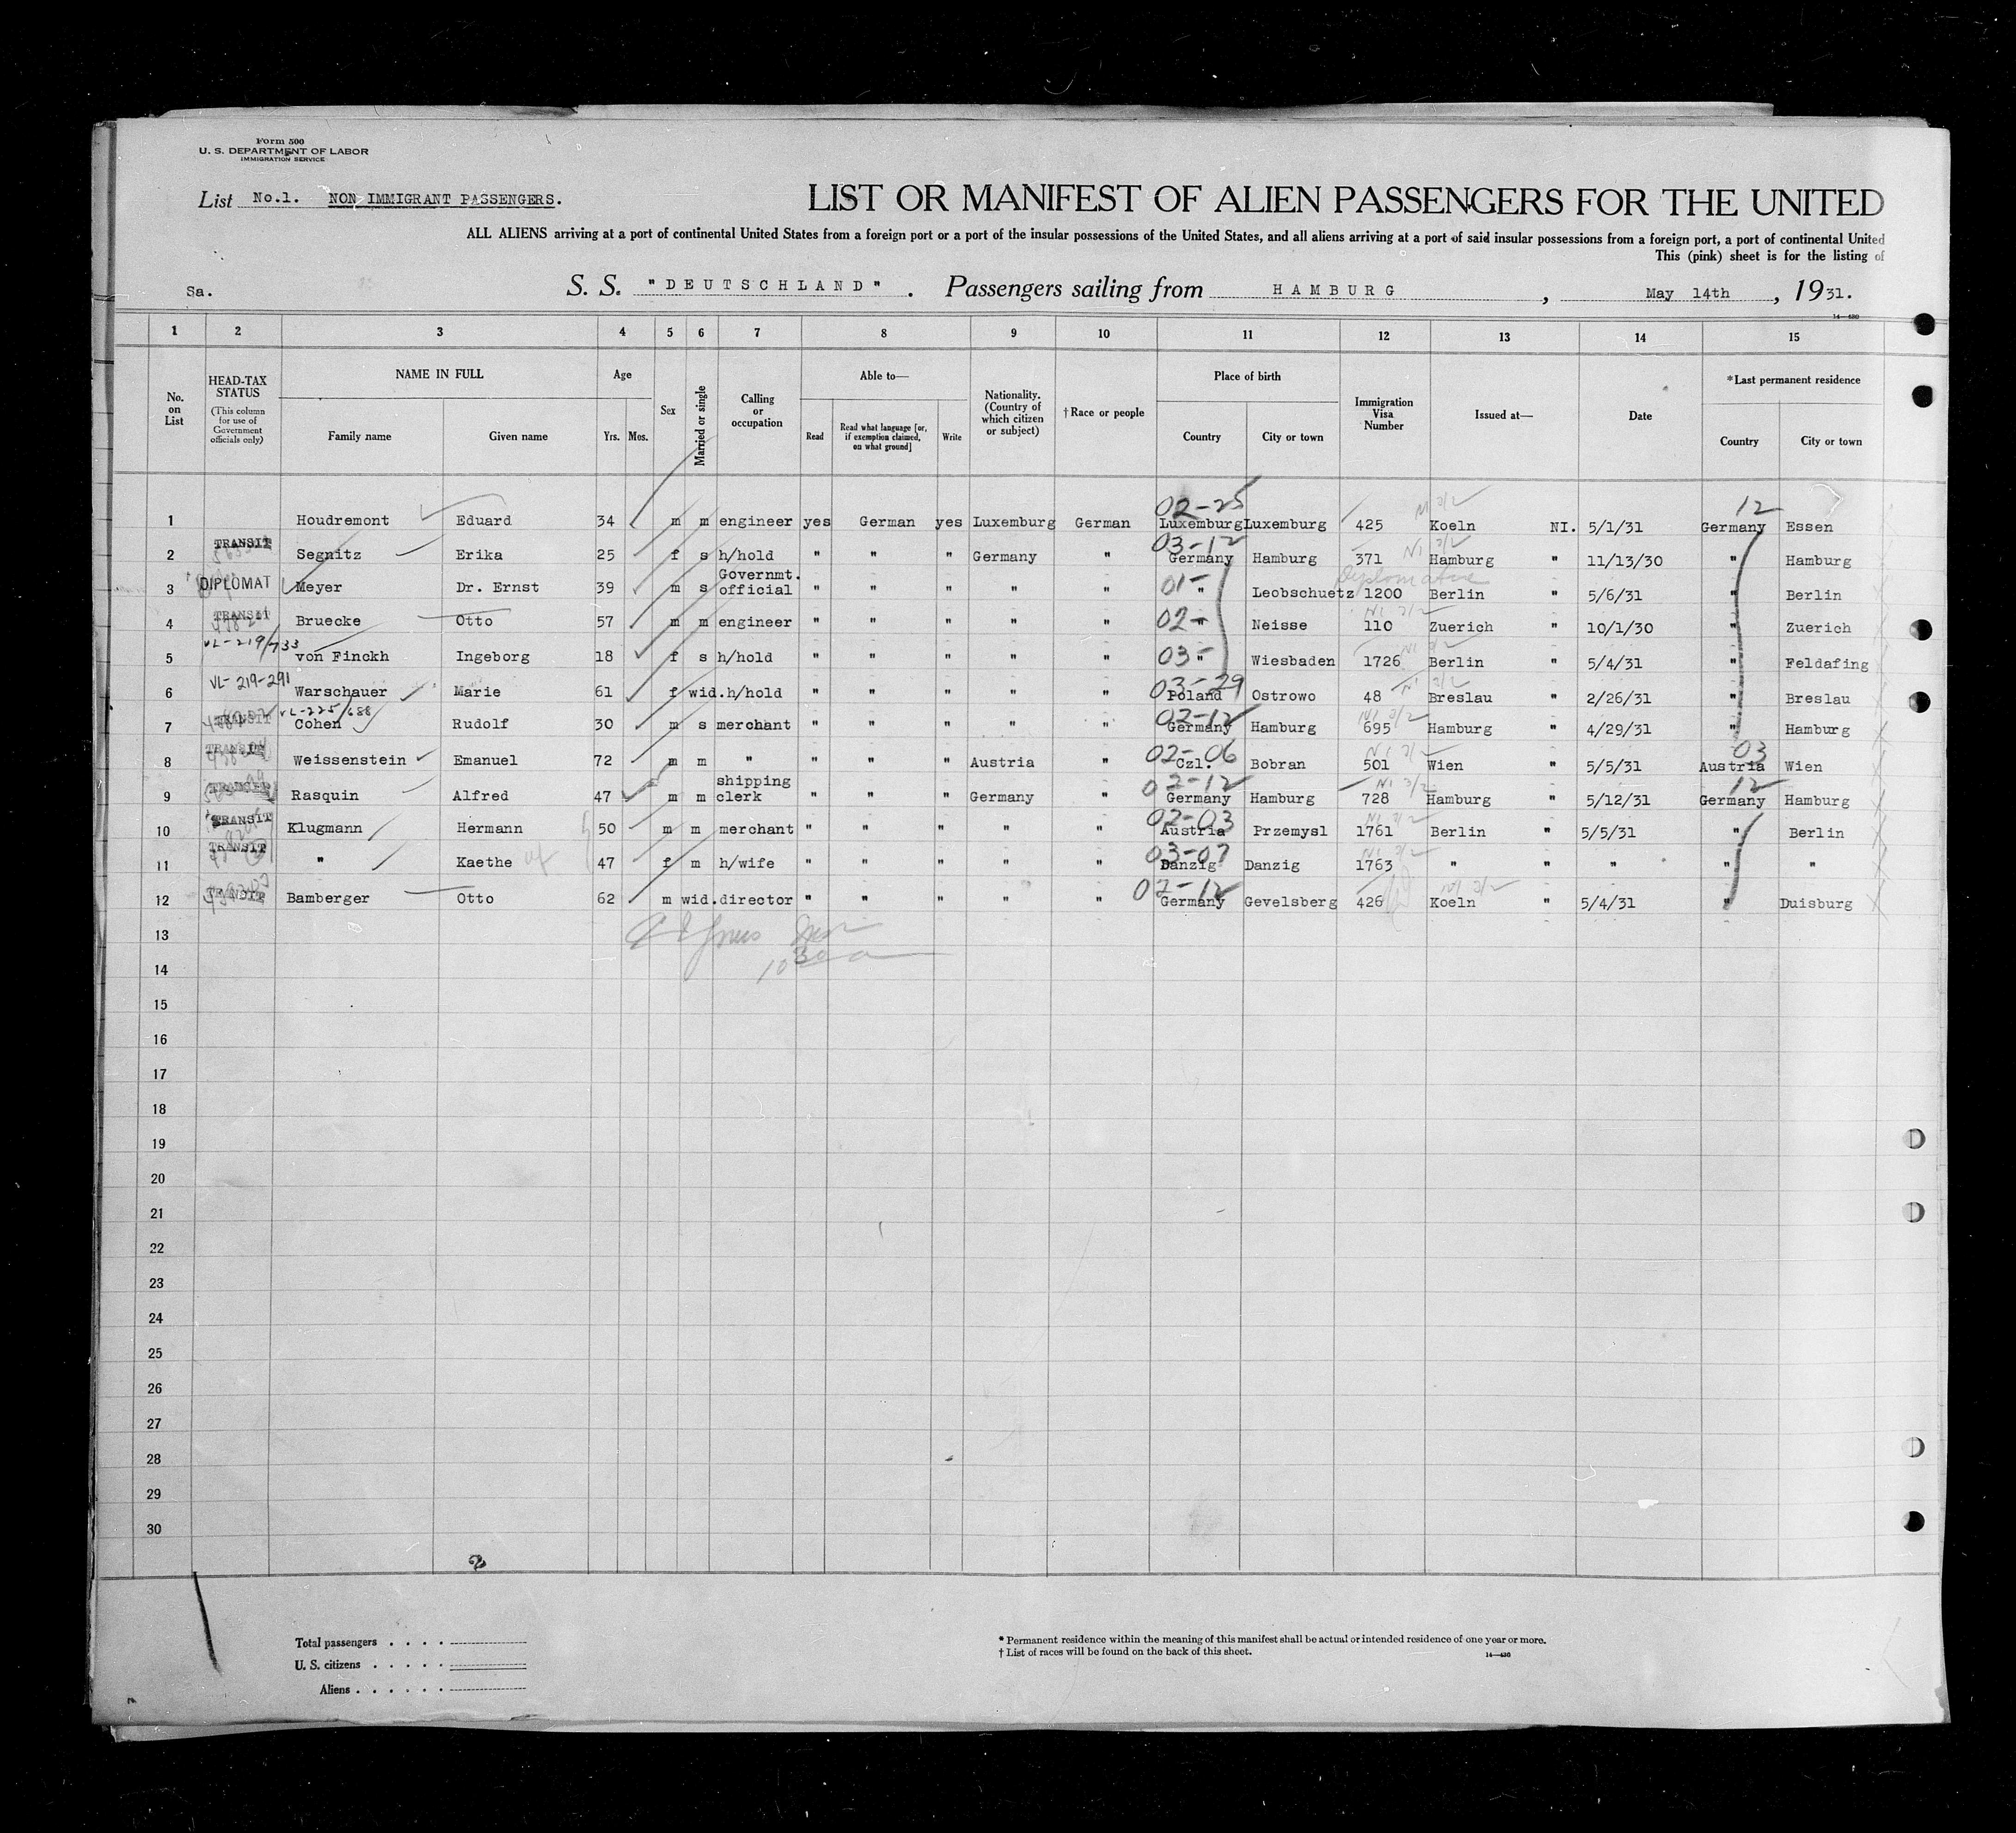 Form 500
U. S. DEPARTMENT OF LABOR
IMMIGRATION SERVICE
List No.1. NON IMMIGRANT PASSENGERS.
LIST OR MANIFEST OF ALIEN PASSENGERS FOR THE UNITED
ALL ALIENS arriving at a port of continental United States from a foreign port or a port of the insular possessions of the United States, and all aliens arriving at a port of said insular possessions from a foreign port, a port of continental United
This (pink) sheet is for the listing of
Sa. S. S. "DEUTSCHLAND". Passengers sailing from HAMBURG, May 14th, 1931.
14—430
1 2 3 4 5 6 7 8 9 10 11 12 13 14 15
No. on List
HEAD-TAX STATUS
(This column for use of Government officials only)
NAME IN FULL
Family name Given name
Age
Yrs. Mos.
Sex
Married or single
Calling or occupation
Able to—
Read
Read what language [or, if exemption claimed, on what ground]
Write
Nationality. (Country of which citizen or subject)
† Race or people
Place of birth
Country City or town
Immigration Visa Number
Issued at—
Date
*Last permanent residence
Country City or town
02-25 12
1 Houdremont Eduard 34 m m engineer yes German yes Luxemburg German Luxemburg Luxemburg 425 Koeln NI. 5/1/31 Germany Essen
TRANSIT 03-12
2 Segnitz Erika 25 f s h/hold " " " Germany " Germany Hamburg 371 Hamburg " 11/13/30 " Hamburg
DIPLOMAT 01- Diplomatic
3 Meyer Dr. Ernst 39 m s Governmt. official " " " " " " Leobschuetz 1200 Berlin " 5/6/31 " Berlin
TRANSIT 02-
4 Bruecke Otto 57 m m engineer " " " " " " Neisse 110 Zuerich " 10/1/30 " Zuerich
VL-219/733 03-
5 von Finckh Ingeborg 18 f s h/hold " " " " " " Wiesbaden 1726 Berlin " 5/4/31 " Feldafing
VL-219-291 03-29
6 Warschauer Marie 61 f wid. h/hold " " " " " Poland Ostrowo 48 Breslau " 2/26/31 " Breslau
TRANSIT VL-225/688 02-12
7 Cohen Rudolf 30 m s merchant " " " " " Germany Hamburg 695 Hamburg " 4/29/31 " Hamburg
TRANSIT 02-06 03
8 Weissenstein Emanuel 72 m m " " " " Austria " Czl. Bobran 501 Wien " 5/5/31 Austria Wien
TRANSIT 02-12 12
9 Rasquin Alfred 47 m m shipping clerk " " " Germany " Germany Hamburg 728 Hamburg " 5/12/31 Germany Hamburg
TRANSIT 02-03
10 Klugmann Hermann 50 m m merchant " " " " " Austria Przemysl 1761 Berlin " 5/5/31 " Berlin
TRANSIT 03-07
11 " Kaethe 47 f m h/wife " " " " " Danzig Danzig 1763 " " " " "
TRANSIT 02-12
12 Bamberger Otto 62 m wid. director " " " " " Germany Gevelsberg 426 Koeln " 5/4/31 " Duisburg
13
14
15
16
17
18
19
20
21
22
23
24
25
26
27
28
29
30
2
Total passengers
U. S. citizens
Aliens
* Permanent residence within the meaning of this manifest shall be actual or intended residence of one year or more.
† List of races will be found on the back of this sheet.
14—430